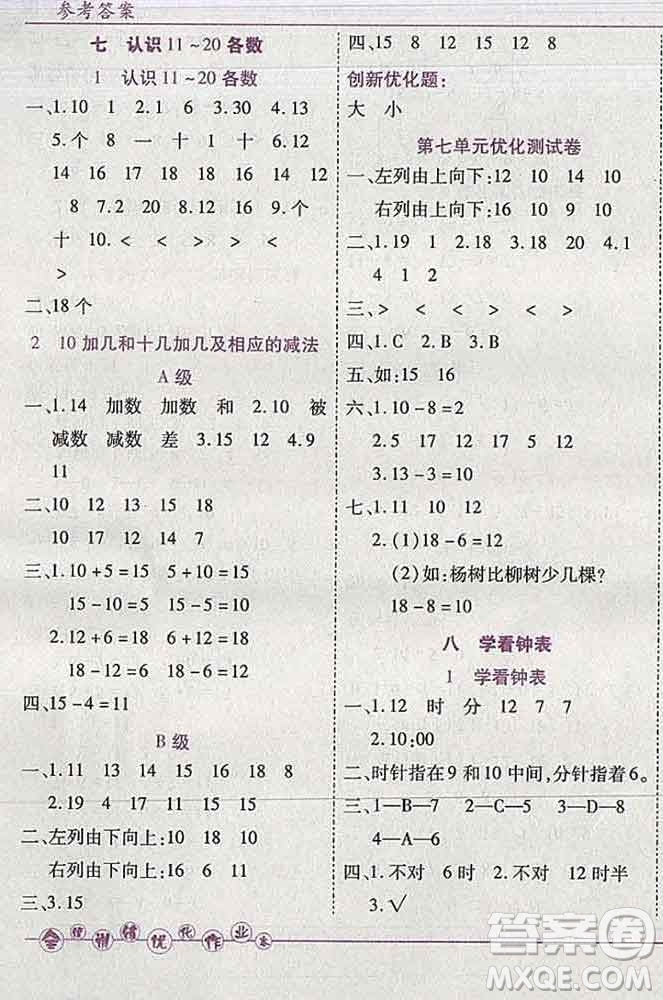 参考答案
七 认识11~20各数
1 认识11~20各数
一、1.10 1 2.1 6 3.30 4.13
5.个 8 一 十 1 十 12
14 16 17 18 18 16 14
8 7.2 20 8.12 16 9.个
十 10.< < > > < <
>
二、18个
2 10加几和十几加几及相应的减法
A级
一、1.14 加数 加数 和 2.10 被
减数 减数 差 3.15 12 4.9
11
二、10 12 13 15 18
10 17 12 14 7
三、1.10+5=15 5+10=15
15-10=5 15-5=10
2.12+6=18 6+12=18
18-12=6 18-6=12
四、15-4=11
B级
一、1.11 13 14 15 16 18 8
2.19 4 15 2 10
二、左列由下向上:10 18 10
右列由下向上:15 16 11
三、3.15
全程训练优化作业卷
四、15 8 12 15 5
创新优化题:
大 小
第七单元优化测试卷
一、左列由上向下:12 10 14 10
右列由上向下:10 9 10 10
二、1.19 1 2.18 3.17 20 4.1
4 1 2
三、> < < > < >
四、1.C 2.B 3.B
五、如:15 16
六、1.10-8=2
2.5 17 12 12
3.13-3=10
七、1.11 10 12
2.(1)18-6=12
(2)如:杨树比柳树少几棵?
18-8=10
八 学看钟表
1 学看钟表
一、1.12 时 分 12 7 7
2.10:00
二、时针指在9和10中间,分针指着6。
三、1—B—7 2—C—5 3—D—8
4—A—6
四、1.不对 6时 2.不对 12时半
3.√
答案圈
MXQE.COM